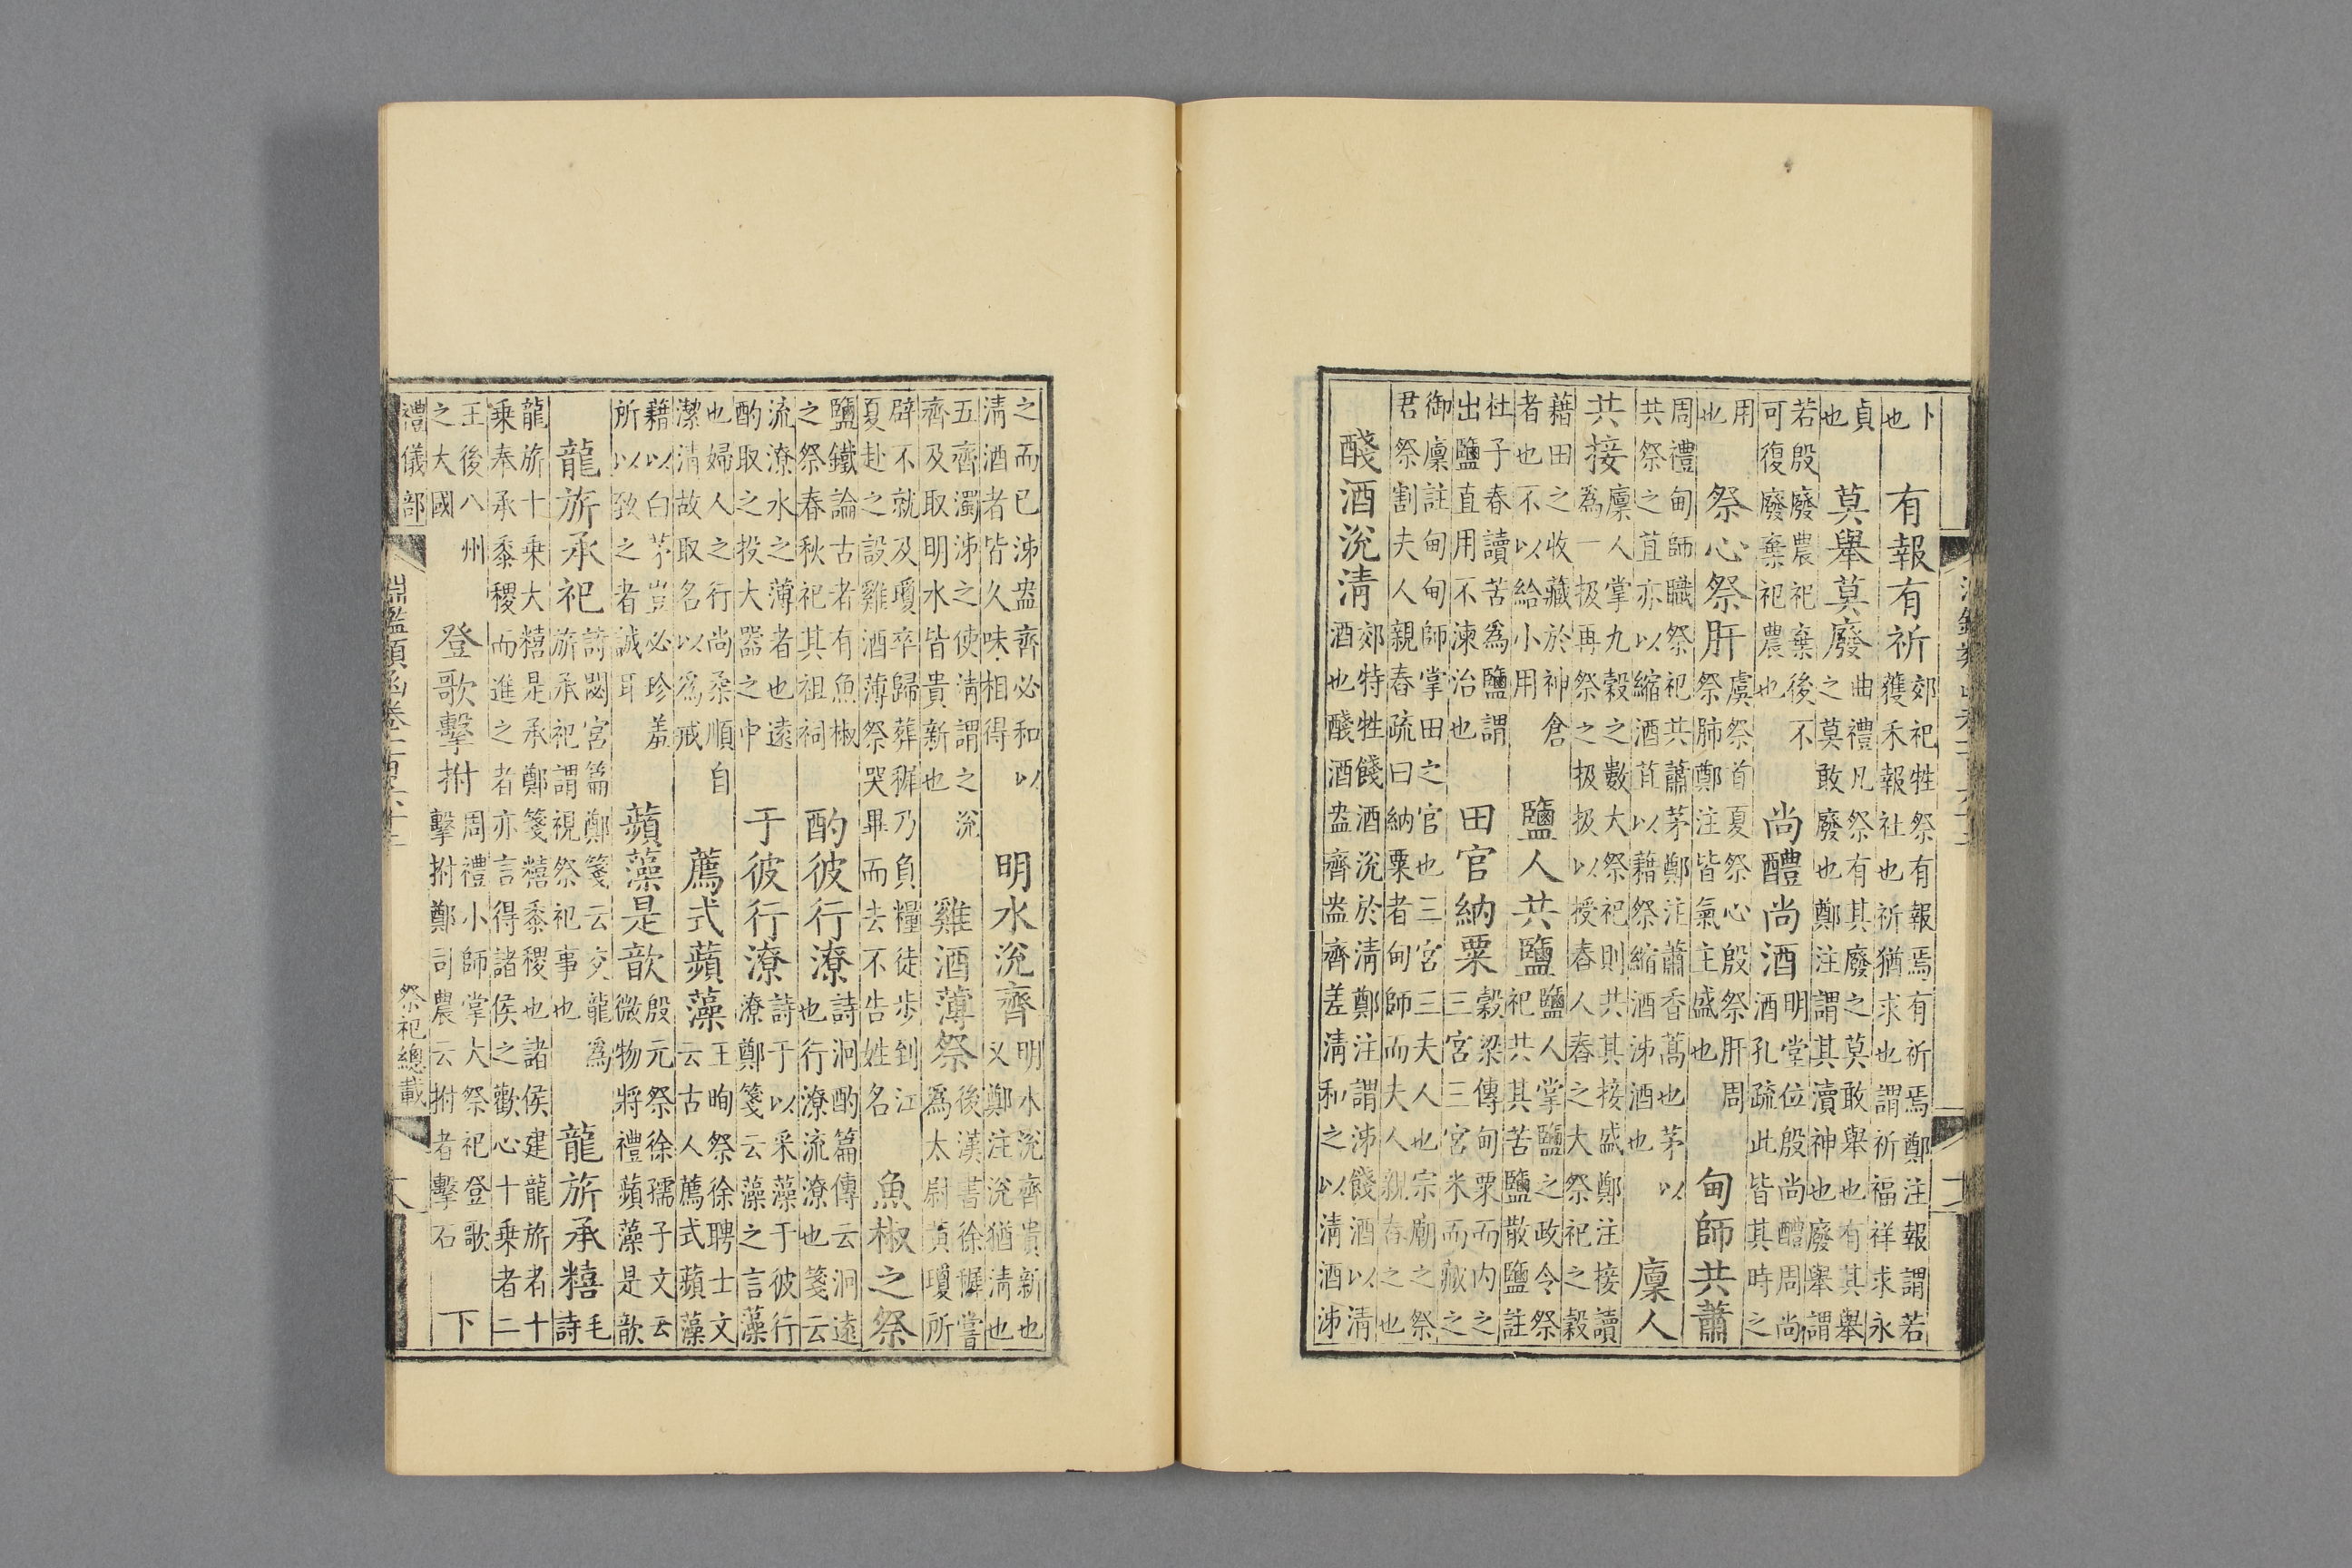 卜也有報有祈郊祀牲祭有報焉有祈焉鄭注報謂若獲禾報社也祈猶求也謂祈福祥求永
貞也莫舉莫廢曲禮凡祭有其廢之莫敢舉也有其舉之莫敢廢也鄭注謂其瀆神也廢舉謂
若殷廢農祀棄後不可復廢棄祀農也尚醴尚酒明堂位殷尚醴周尚酒孔疏此皆其時之
用也祭心祭肝虞祭首夏祭心殷祭肝周祭肺鄭注皆氣主盛也甸師共蕭
周禮甸師職祭祀共蕭茅鄭注蕭香蒿也茅以共祭之苴亦以縮酒苴以藉祭縮酒泲酒也廩人
共接廩人掌九穀之數大祭祀則共其接盛鄭注接讀為一扱再祭之扱扱以授舂人舂之大祭祀之穀
藉田之收藏於神倉者也不以給小用鹽人共鹽鹽人掌鹽之政令祭祀共其苦鹽散鹽註
杜子春讀苦為鹽謂出鹽直用不湅治也田官納粟穀梁傳甸粟而内之三宮三宮米而藏之
御廩註甸甸師掌田之官也三宮三夫人也宗廟之祭君祭割夫人親舂疏曰納粟者甸師而夫人親舂之也
醆酒涚清郊特牲餞酒涚於清鄭注謂泲餞酒以清酒也醆酒盎齊盎齊差清和之以清酒泲
之而已泲盎齊必和以清酒者皆久味相得明水涚齊明水涚齊貴新也又鄭注涚猶清也
五齊濁泲之使清謂之涚齊及取明水皆貴新也雞酒薄祭後漢書徐穉嘗為太尉黃瓊所
辟不就及瓊卒歸葬穉乃負糧徒步到江夏赴之設雞酒薄祭哭畢而去不告姓名魚椒之祭
鹽鐵論古者有魚椒之祭春秋祀其祖祠酌彼行潦詩泂酌篇傳云泂遠也行潦流潦也箋云
流潦水之薄者也遠酌取之投大器之中于彼行潦詩于以采藻于彼行潦鄭箋云藻之言藻
也婦人之行尚柔順自潔清故取名以為戒薦式蘋藻王眴祭徐聘士文云古人薦式蘋藻
藉以白茅豈必珍羞所以致之者誠耳蘋藻是歆殷元祭徐孺子文云微物將禮蘋藻是歆
龍旂承祀詩閟宮篇鄭箋云交龍為旂承祀謂視祭祀事也龍旂承糦毛詩
龍旂十乗大糦是承鄭箋糦黍稷也諸侯建龍旂者十乗奉承黍稷而進之者亦言得諸侯之歡心十乗者二
王後八州之大國登歌擊拊周禮小師掌大祭祀登歌擊拊鄭司農云拊者擊石下
禮儀部 淵鑑類函卷一百六十 祭祀總載